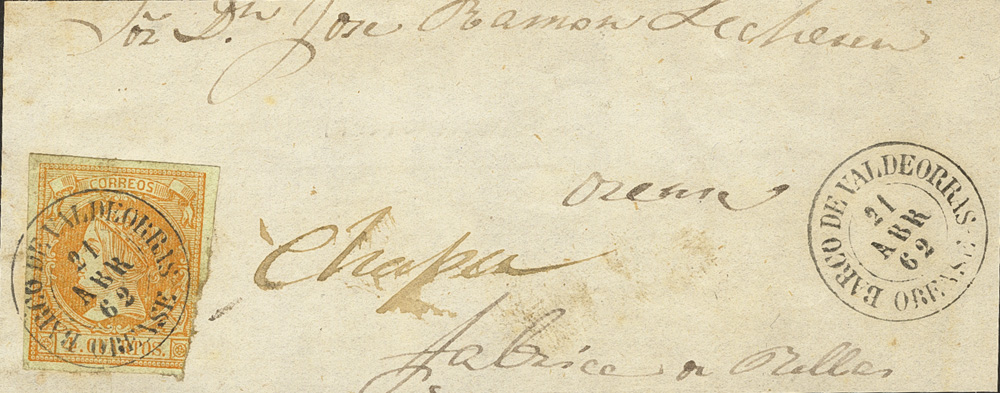 Sor Dn Jose Ramon
CORREOS
BARCO DE VALDEORRAS
21
ABR
62
ORENSE
orense
BARCO DE VALDEORRAS
21
ABR
62
ORENSE
Chapa
CUARTOS.
fabrica